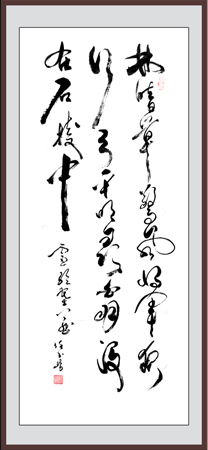 林暗草惊风将军夜
引弓平明寻白羽没
在石棱中